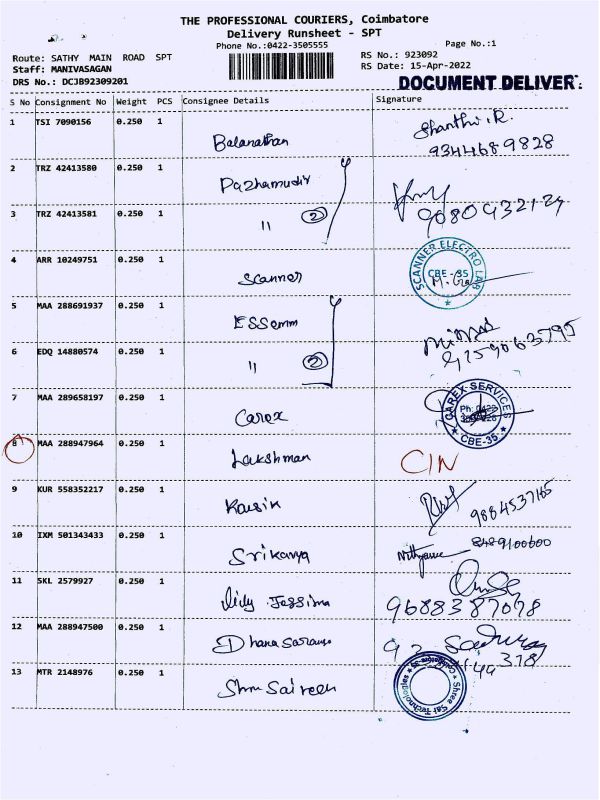 THE PROFESSIONAL COURIERS, Coimbatore
Delivery Runsheet - SPT
Phone No.:0422-3505555 Page No.:1
Route: SATHY MAIN ROAD SPT RS No.: 923092
Staff: MANIVASAGAN RS Date: 15-Apr-2022
DRS No.: DCJB92309201
DOCUMENT DELIVER
S No Consignment No Weight PCS Consignee Details Signature
1 TSI 7090156 0.250 1 Balanathan Shanthi.R.
9344689828
2 TRZ 42413580 0.250 1 Pazhamudir
3 TRZ 42413581 0.250 1 " 2
4 ARR 10249751 0.250 1 Scanner SCANNER ELECTRO LAB CBE-35
5 MAA 288691937 0.250 1 ESSemm
6 EDQ 14880574 0.250 1 " 2
7 MAA 289658197 0.250 1 Carex CAREX SERVICES CBE-35
8 MAA 288947964 0.250 1 Lakshman CIN
9 KUR 558352217 0.250 1 Kausik
10 IXM 501343433 0.250 1 Srikanya 8489100600
11 SKL 2579927 0.250 1 Lidy Jessima 9688387078
12 MAA 288947500 0.250 1 318
13 MTR 2148976 0.250 1 Shree Sai Technologies Coimbatore-35